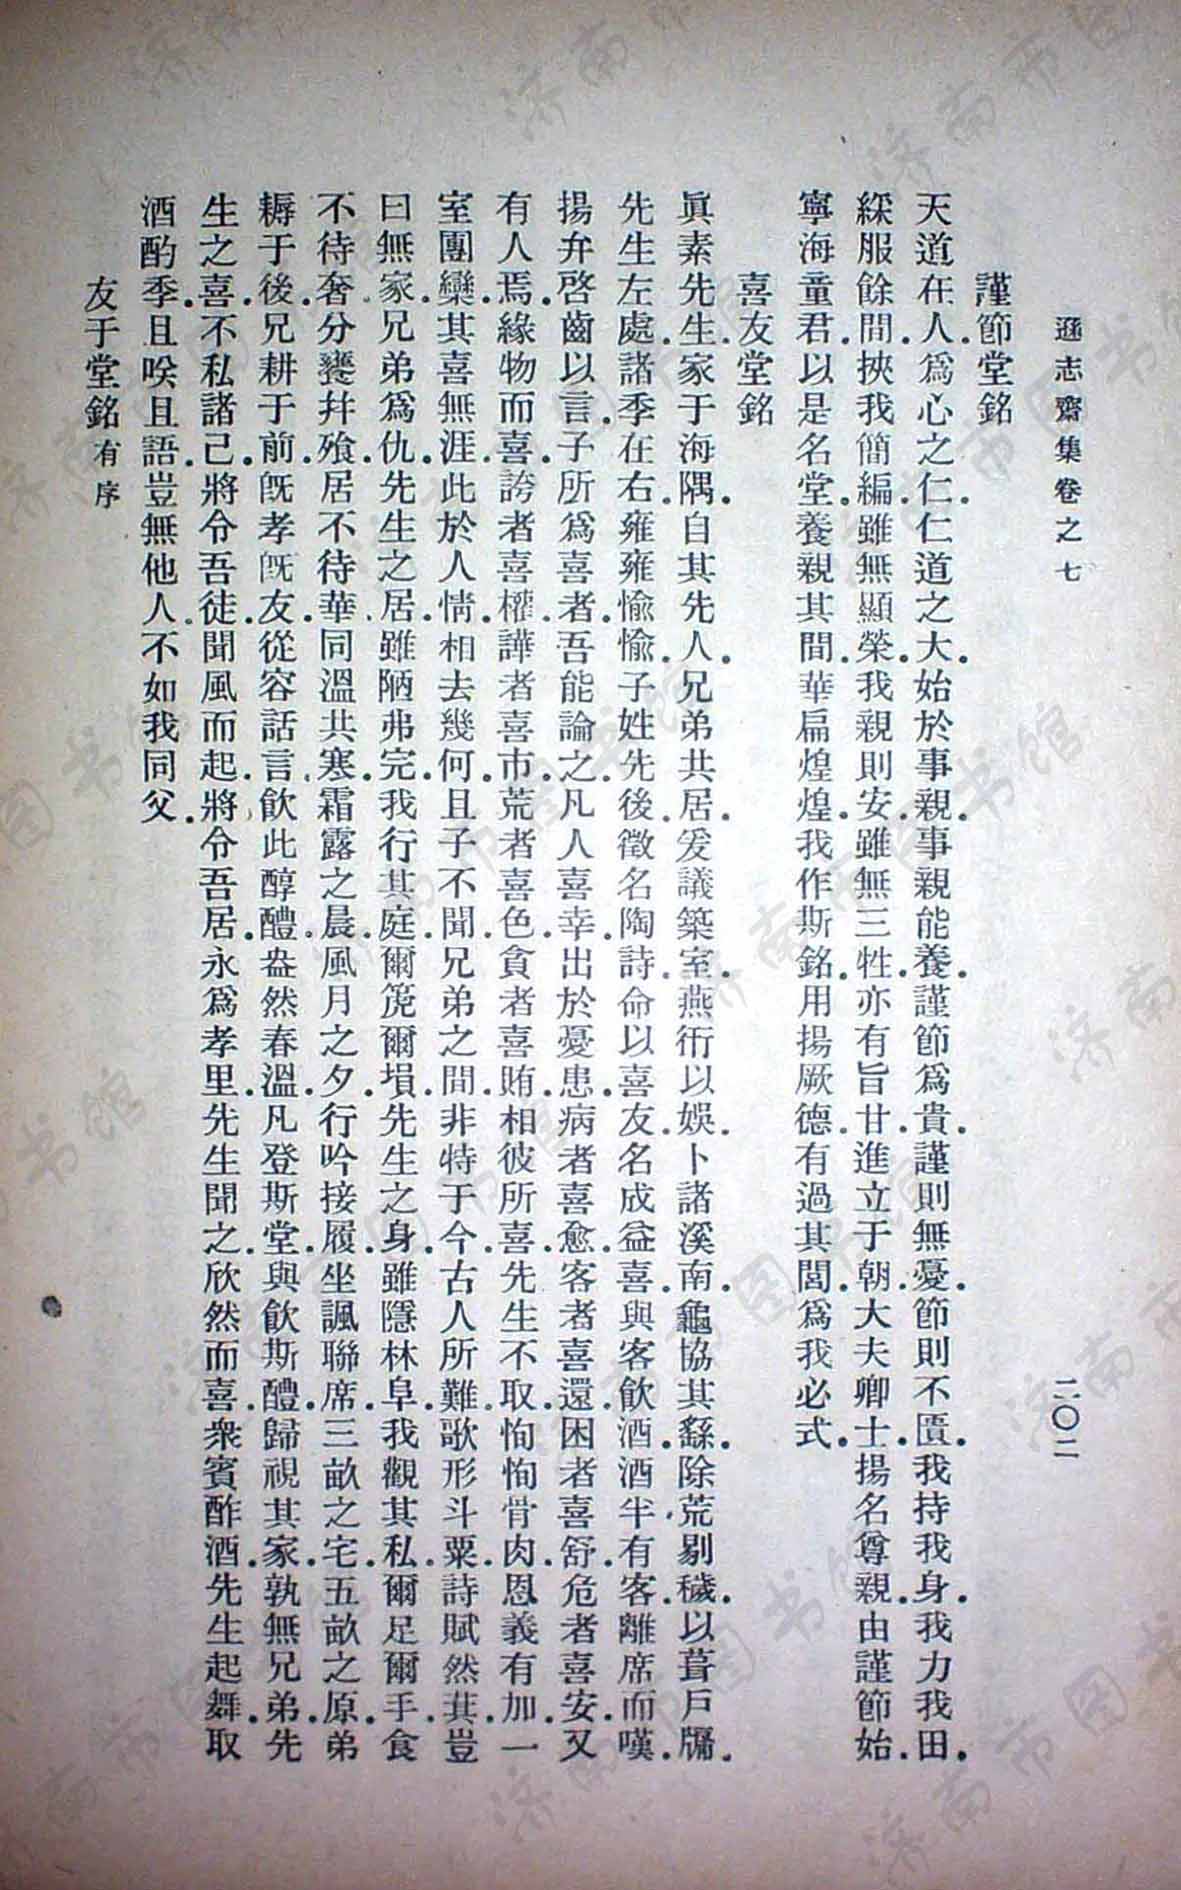 遜志齋集卷之七
二〇二
謹節堂銘
天道在人.爲心之仁.仁道之大.始於事親.事親能養.謹節爲貴.謹則無憂.節則不匱.我持我身.我力我田.
綵服餘間.挾我簡編.雖無顯榮.我親則安.雖無三牲.亦有旨甘.進立于朝.大夫卿士.揚名尊親.由謹節始.
寧海童君.以是名堂.養親其間.華扁煌煌.我作斯銘.用揚厥德.有過其閭.爲我必式.
喜友堂銘
眞素先生.家于海隅.自其先人.兄弟共居.爰議築室.燕衎以娛.卜諸溪南.龜協其繇.除荒剔穢.以葺戶牖.
先生左處.諸季在右.雍雍愉愉.子姓先後.徵名陶詩.命以喜友.名成益喜.與客飲酒.酒半有客.離席而嘆.
揚弁啓齒以言.子所爲喜者.吾能論之.凡人喜幸.出於憂患.病者喜愈.客者喜還.困者喜舒.危者喜安.又
有人焉.緣物而喜.誇者喜權.譁者喜市.荒者喜色.貪者喜賄.相彼所喜.先生不取.恂恂骨肉.恩義有加.一
室團欒.其喜無涯.此於人情.相去幾何.且子不聞.兄弟之間.非特于今.古人所難.歌形斗粟.詩賦然萁.豈
曰無家.兄弟爲仇.先生之居.雖陋弗完.我行其庭.爾箎爾塤.先生之身.雖隱林阜.我觀其私.爾足爾手.食
不待奢.分饔并飱.居不待華.同溫共寒.霜露之晨.風月之夕.行吟接履.坐諷聯席.三畝之宅.五畝之原.弟
耨于後.兄耕于前.旣孝旣友.從容話言.飲此醇醴.盎然春溫.凡登斯堂.與飲斯醴.歸視其家.孰無兄弟.先
生之喜.不私諸己.將令吾徒.聞風而起.將令吾居.永爲孝里.先生聞之.欣然而喜.衆賓酢酒.先生起舞.取
酒酌季.且唉且語.豈無他人.不如我同父.
友于堂銘有序